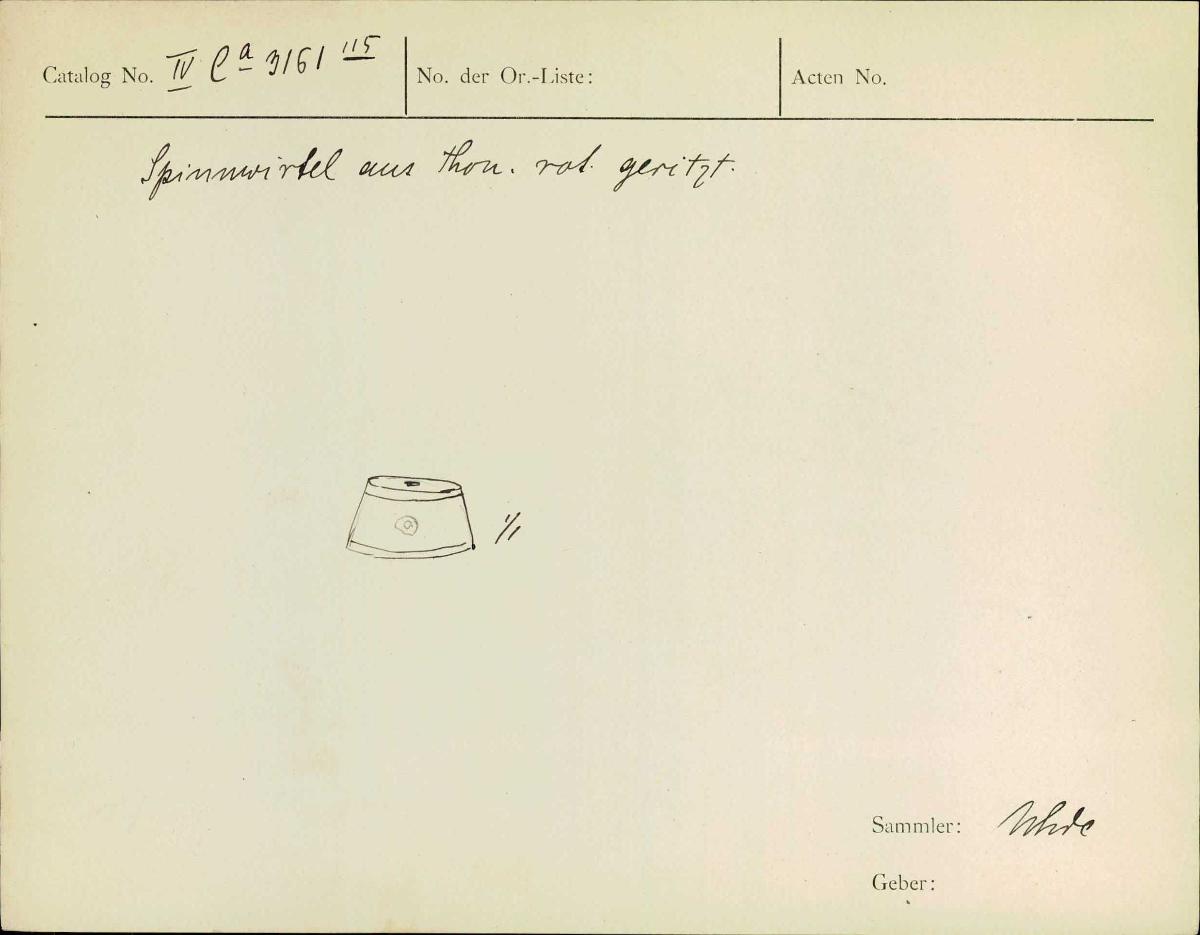 Catalog No. IV Ca 3161 115
No. der Or.-Liste:
Acten No.
Spinnwirtel aus Thon. rot. geritzt.
1/1
Sammler: Uhde
Geber: